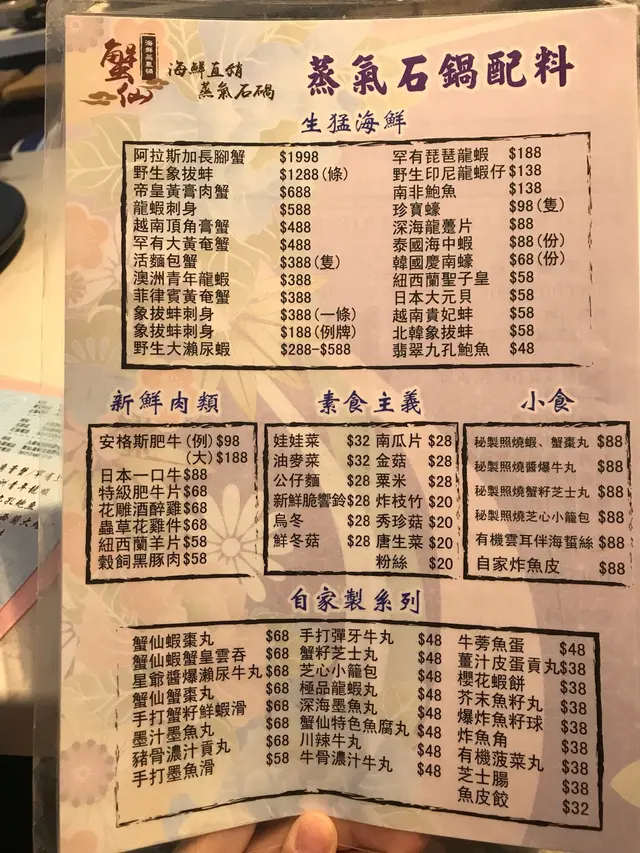 蟹仙
海鮮蒸氣鍋
海鮮直銷
蒸氣石鍋
蒸氣石鍋配料
生猛海鮮
阿拉斯加長腳蟹 $1998
野生象拔蚌 $1288(條)
帝皇黃膏肉蟹 $688
龍蝦刺身 $588
越南頂角膏蟹 $488
罕有大黃奄蟹 $488
活麵包蟹 $388(隻)
澳洲青年龍蝦 $388
菲律賓黃奄蟹 $388
象拔蚌刺身 $388(一條)
象拔蚌刺身 $188(例牌)
野生大瀨尿蝦 $288-$588
罕有琵琶龍蝦 $188
野生印尼龍蝦仔 $138
南非鮑魚 $138
珍寶蠔 $98(隻)
深海龍躉片 $88
泰國海中蝦 $88(份)
韓國慶南蠔 $68(份)
紐西蘭聖子皇 $58
日本大元貝 $58
越南貴妃蚌 $58
北韓象拔蚌 $58
翡翠九孔鮑魚 $48
新鮮肉類
安格斯肥牛(例) $98
(大) $188
日本一口牛 $88
特級肥牛片 $68
花雕酒醉雞 $68
蟲草花雞件 $68
紐西蘭羊片 $58
穀飼黑豚肉 $58
素食主義
娃娃菜 $32
油麥菜 $32
公仔麵 $28
新鮮脆響鈴 $28
烏冬 $28
鮮冬菇 $28
南瓜片 $28
金菇 $28
粟米 $28
炸枝竹 $20
秀珍菇 $20
唐生菜 $20
粉絲 $20
小食
秘製照燒蝦、蟹棗丸 $88
秘製照燒醬爆牛丸 $88
秘製照燒蟹籽芝士丸 $88
秘製照燒芝心小籠包 $88
有機雲耳伴海蜇絲 $88
自家炸魚皮 $88
自家製系列
蟹仙蝦棗丸 $68
蟹仙蝦蟹皇雲吞 $68
星爺醬爆瀨尿牛丸 $68
蟹仙蟹棗丸 $68
手打蟹籽鮮蝦滑 $68
墨汁墨魚丸 $68
豬骨濃汁貢丸 $68
手打墨魚滑 $58
手打彈牙牛丸 $48
蟹籽芝士丸 $48
芝心小籠包 $48
極品龍蝦丸 $48
深海墨魚丸 $48
蟹仙特色魚腐丸 $48
川辣牛丸 $48
牛骨濃汁牛丸 $48
牛蒡魚蛋 $48
薑汁皮蛋貢丸 $38
櫻花蝦餅 $38
芥末魚籽丸 $38
爆炸魚籽球 $38
炸魚角 $38
有機菠菜丸 $38
芝士腸 $38
魚皮餃 $32